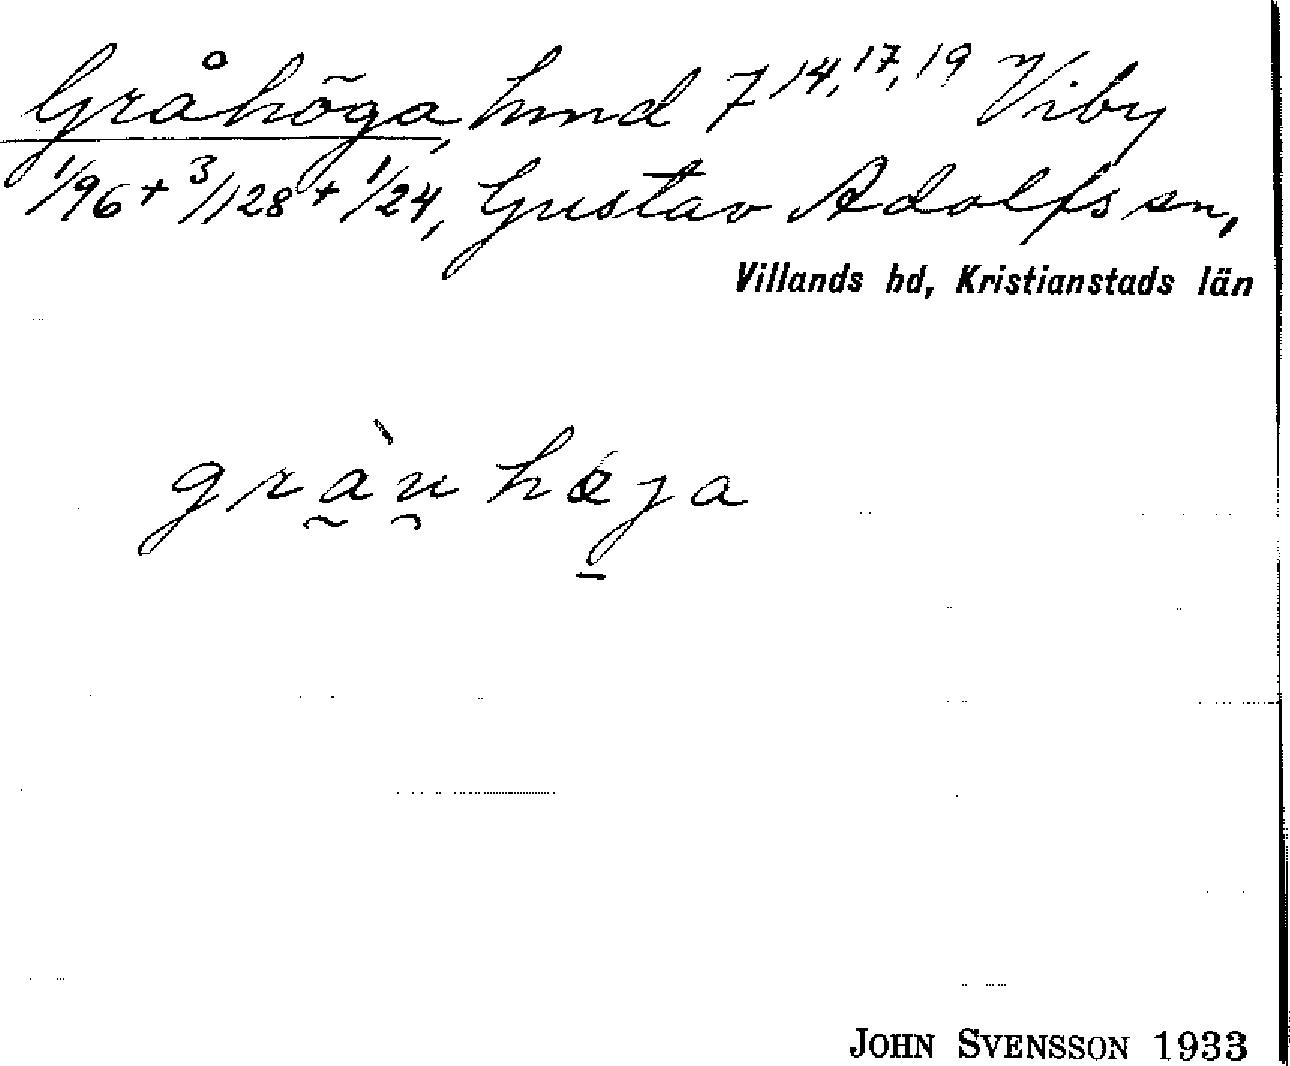 Gråhöga, hmd 7 14, 17, 19 Viby
1/96 + 3/128 + 1/24, Gustav Adolfs sn,
Villands hd, Kristianstads län
grà̰ṷ hø̱ja
JOHN SVENSSON 1933